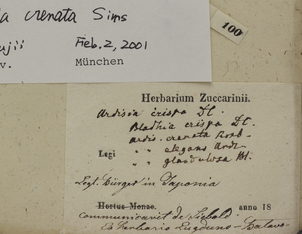 a crenata Sims
ujii
v.
Feb. 2, 2001
München
100
Herbarium Zuccarinii.
Ardisia crispa DC.
Bladhia crispa
ardis. crenata Roxb.
" " elegans Andr.
Legi " " glandulosa Bl.
Legt. Bürger in Japonia
Hortus Monac. anno 18
communicavit de Siebold
Ex Herbario Lugduno-Batavo